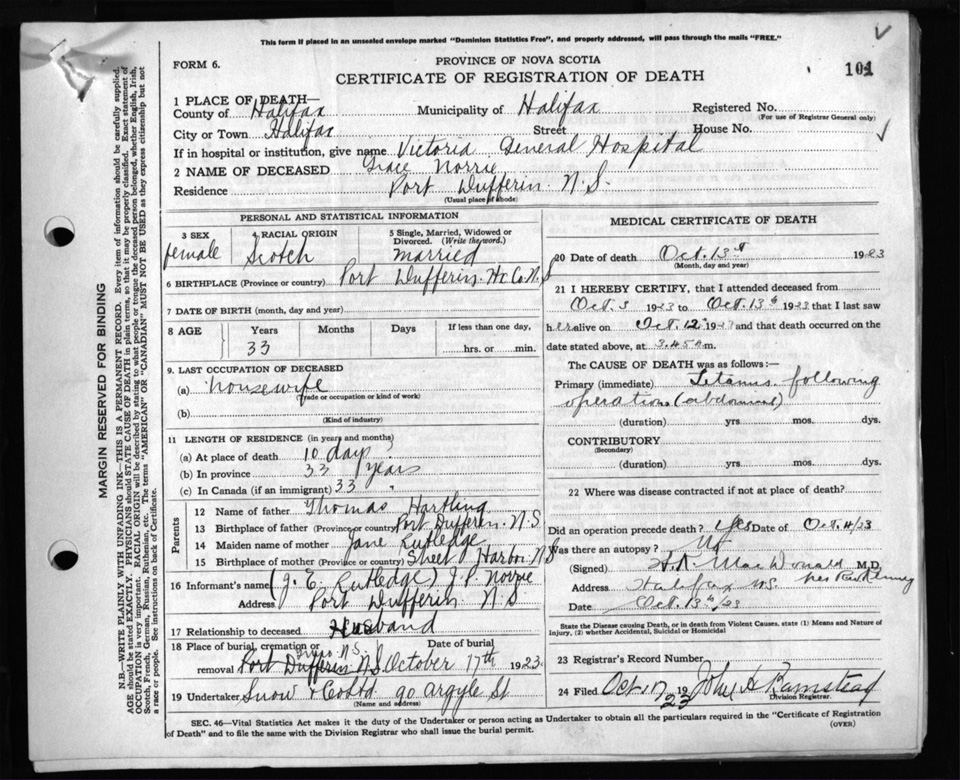 This form if placed in an unsealed envelope marked "Dominion Statistics Free", and properly addressed, will pass through the mails "FREE."
FORM 6.
PROVINCE OF NOVA SCOTIA
CERTIFICATE OF REGISTRATION OF DEATH
101
1 PLACE OF DEATH—
County of Halifax Municipality of Halifax Registered No.
(For use of Registrar General only)
City or Town Halifax Street House No.
If in hospital or institution, give name Victoria General Hospital
2 NAME OF DECEASED Grace Norrie
Residence Port Dufferin N.S.
(Usual place of abode)
PERSONAL AND STATISTICAL INFORMATION
3 SEX
female
4 RACIAL ORIGIN
Scotch
5 Single, Married, Widowed or
Divorced. (Write the word.)
married
6 BIRTHPLACE (Province or country) Port Dufferin Hx. Co. N.S
7 DATE OF BIRTH (month, day and year)
8 AGE Years Months Days If less than one day,
33 hrs. or min.
9. LAST OCCUPATION OF DECEASED
(a) housewife
(Trade or occupation or kind of work)
(b)
(Kind of industry)
11 LENGTH OF RESIDENCE (in years and months)
(a) At place of death 10 days
(b) In province 33 years
(c) In Canada (if an immigrant) 33 "
Parents
12 Name of father Thomas Hartling
13 Birthplace of father (Province or country) Port Dufferin N.S.
14 Maiden name of mother Jane Rutledge
15 Birthplace of mother (Province or country) Sheet Harbor N.S
16 Informant's name (J. E. Rutledge) J. P. Norrie
Address Port Dufferin N.S
17 Relationship to deceased Husband
18 Place of burial, cremation or Date of burial
removal Port Dufferin N.S. October 17th 1923
19 Undertaker Snow & Co Ltd 90 Argyle St
(Name and address)
MEDICAL CERTIFICATE OF DEATH
20 Date of death Oct. 13th 1923
(Month, day and year)
21 I HEREBY CERTIFY, that I attended deceased from
Oct. 3 1923 to Oct. 13th 1923 that I last saw
her alive on Oct. 12th 1923 and that death occurred on the
date stated above, at 3.45 a m.
The CAUSE OF DEATH was as follows:—
Primary (immediate) Tetanus following
operation (abdominal)
(duration) yrs. mos. dys.
CONTRIBUTORY
(Secondary)
(duration) yrs. mos. dys.
22 Where was disease contracted if not at place of death?
Did an operation precede death? Yes Date of Oct. 4/23
Was there an autopsy? No
(Signed) MacDonald M.D.
Address Halifax N.S.
Date Oct. 13th/23
State the Disease causing Death, or in death from Violent Causes, state (1) Means and Nature of
Injury, (2) whether Accidental, Suicidal or Homicidal
23 Registrar's Record Number
24 Filed Oct 17 1923 John H Ramstead
Division Registrar.
SEC. 46—Vital Statistics Act makes it the duty of the Undertaker or person acting as Undertaker to obtain all the particulars required in the "Certificate of Registration
of Death" and to file the same with the Division Registrar who shall issue the burial permit.
(OVER)
MARGIN RESERVED FOR BINDING
N.B.—WRITE PLAINLY WITH UNFADING INK—THIS IS A PERMANENT RECORD. Every item of information should be carefully supplied.
AGE should be stated EXACTLY. PHYSICIANS should STATE CAUSE OF DEATH in plain terms, so that it may be properly classified. Exact statement of
OCCUPATION is very important. RACIAL ORIGIN will be described by stating to what people or tongue the deceased person belonged, whether English, Irish,
Scotch, French, German, Russian, Ruthenian, etc. The terms "AMERICAN" or "CANADIAN" MUST NOT BE USED as they express citizenship but not
a race or people. See instructions on back of Certificate.